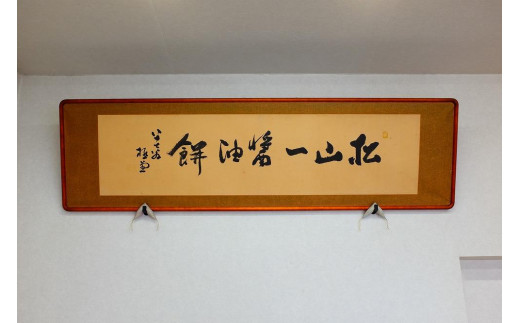 松山一醤油餅